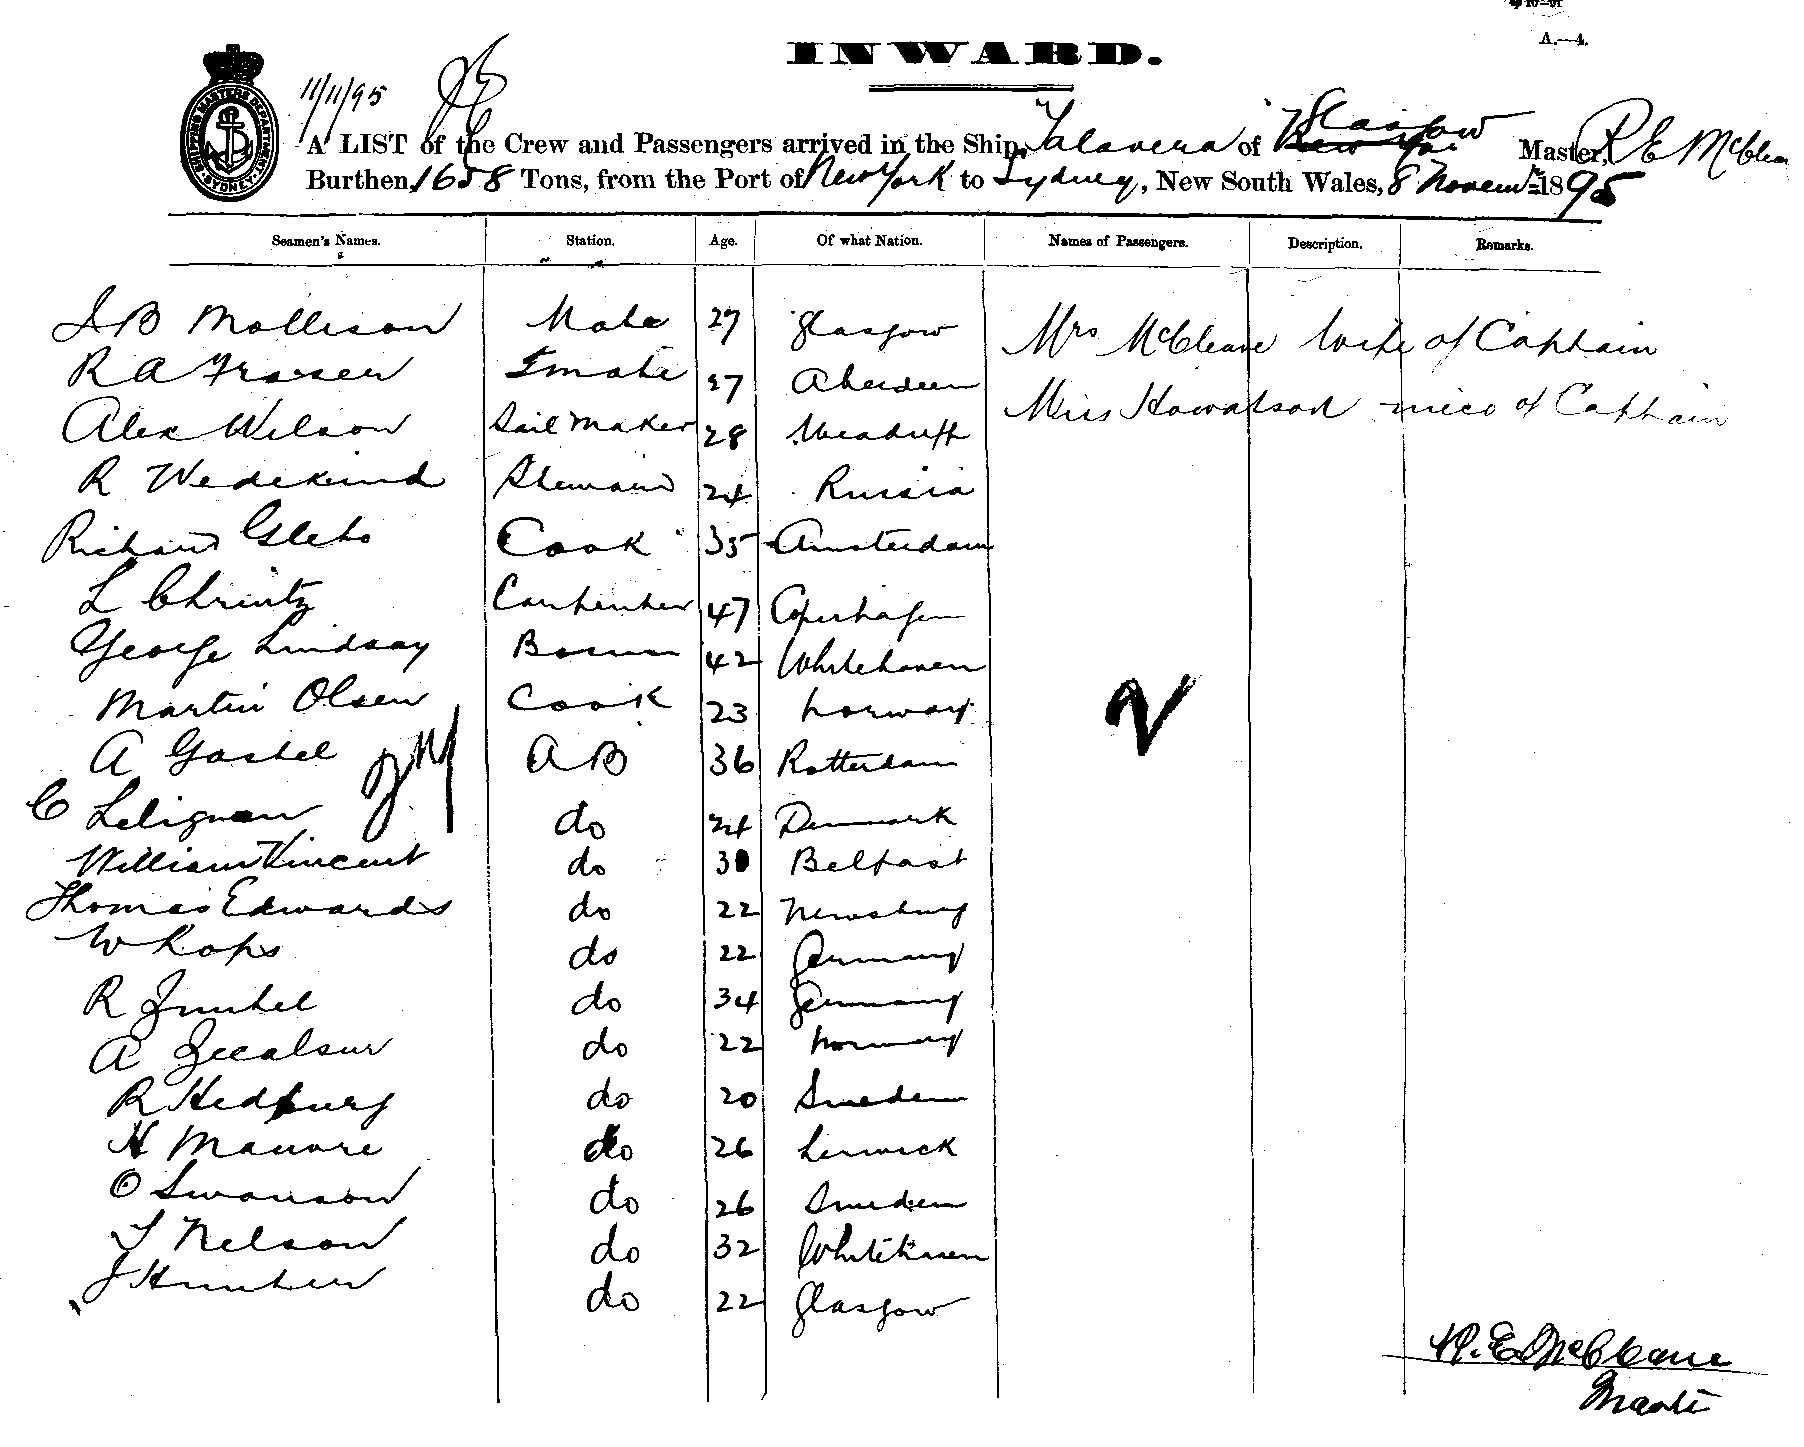 A.—4.
INWARD.
11/11/95
A LIST of the Crew and Passengers arrived in the Ship, "Talavera of Glasgow Master, R E McCleane
Burthen, 1658 Tons, from the Port of New York to Sydney, New South Wales, 8 Novem 1895
SHIPPING MASTERS DEPARTMENT SYDNEY
Seamen's Names. Station. Age. Of what Nation. Names of Passengers. Description. Remarks.
J B Mollison Mate 27 Glasgow Mrs McCleane Wife of Captain
R A Fraser 2 mate 27 Aberdeen Miss Howatson niece of Captain
Alex Wilson Sail Maker 28
R Wedekind Steward 24 Russia
Richard Cook 35 Amsterdam
L Chrintz Carpenter 47 Copenhagen
George Lindsay Bosun 42 Whitehaven
Martin Olsen Cook 23 Norway
A Gastel A B 36 Rotterdam
C do 24 Denmark
William Vincent do 30 Belfast
Thomas Edwards do 22
W do 22 Germany
R do 34 Germany
A do 22 Norway
R Hedburg do 20 Sweden
H do 26 Lerwick
O Swanson do 26 Sweden
T Nelson do 32 Whitehaven
J Hunter do 22 Glasgow
2
R. E. McCleane
Master